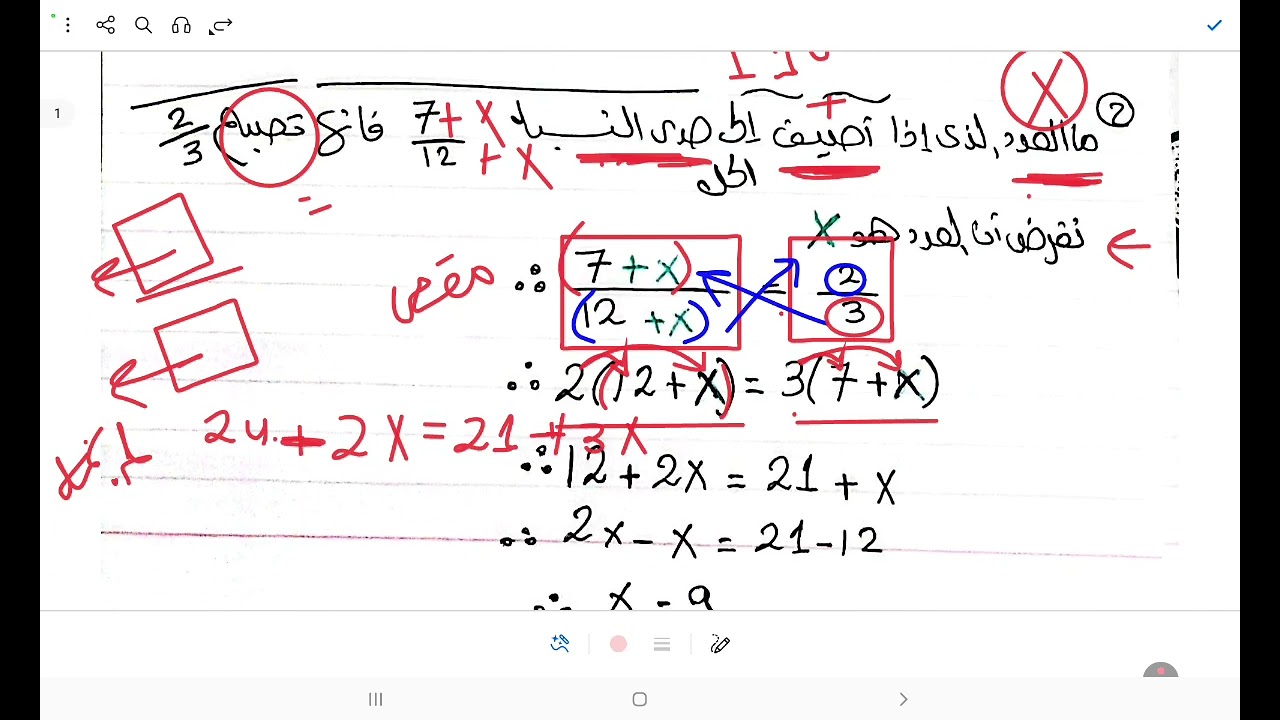 1
② ما العدد الذى إذا أضيف إلى حدى النسبة 7/12 + x + x فإنها تصبح 2/3
← نفرض أن العدد هو X
∴ (7 + x)/(12 + x) = 2/3
∴ 2(12 + x) = 3(7 + x)
24 + 2x = 21 + 3x
∴ 12 + 2x = 21 + x
∴ 2x - x = 21 - 12
∴ x = 9